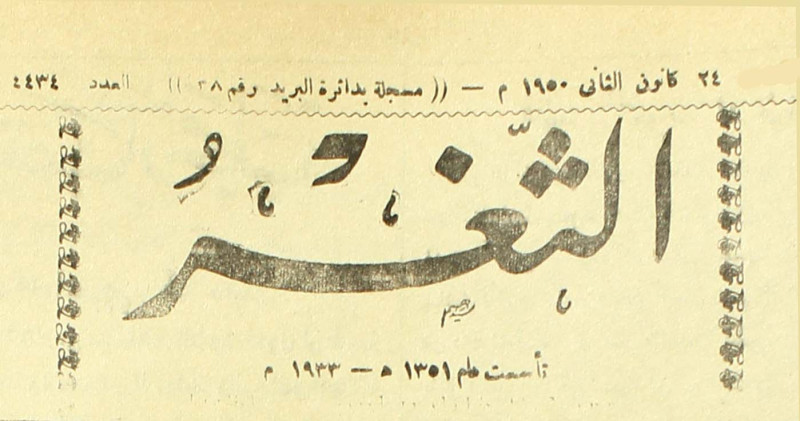 ٢٤ كانونى الثانى ١٩٥٠ م — (( مسجلة بدائرة البريد رقم ٣٨ )) العدد ٤٤٣٤
الثَّغْرُ
تأسست عام ١٣٥١ ه — ١٩٣٣ م